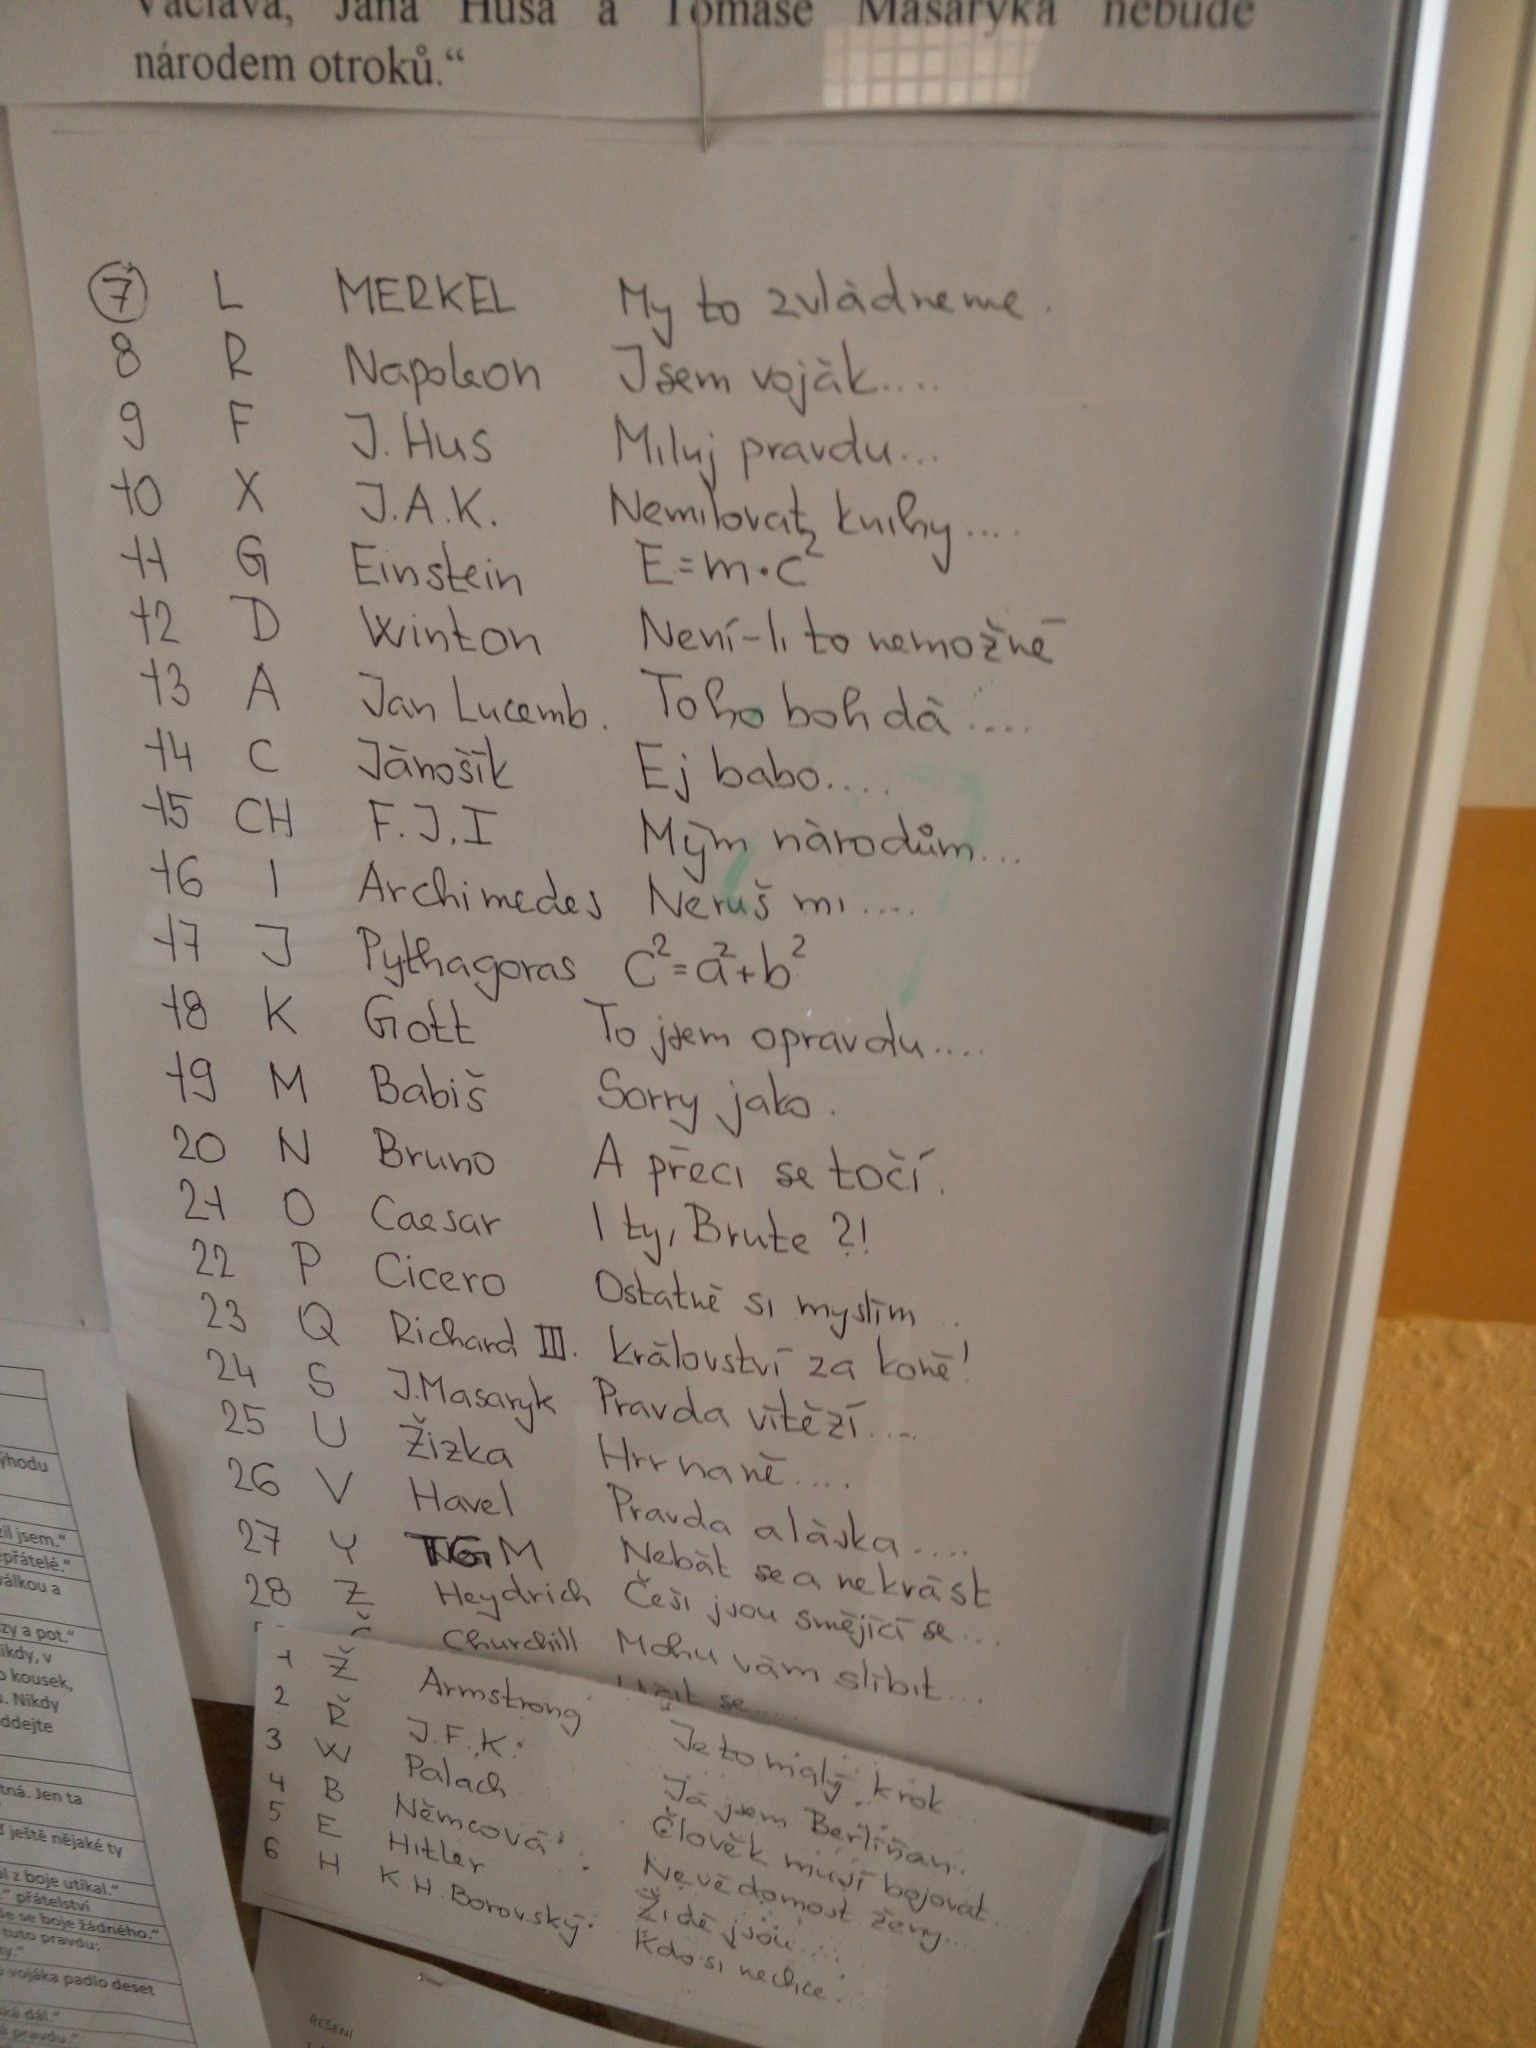 Václava, Jana Husa a Tomáše Masaryka nebude
národem otroků.“
7 L MERKEL My to zvládneme.
8 R Napoleon Jsem voják....
9 F J. Hus Miluj pravdu...
10 X J.A.K. Nemilovat knihy....
11 G Einstein E=m·c²
12 D Winton Není-li to nemožné
13 A Jan Lucemb. Toho bohdá ....
14 C Jánošík Ej babo....
15 CH F.J.I Mým národům...
16 I Archimedes Neruš mi ....
17 J Pythagoras c²=a²+b²
18 K Gott To jsem opravdu....
19 M Babiš Sorry jako.
20 N Bruno A přeci se točí.
21 O Caesar I ty, Brute ?!
22 P Cicero Ostatně si myslím ..
23 Q Richard III. Království za koně!
24 S J.Masaryk Pravda vítězí....
25 U Žižka Hrr na ně....
26 V Havel Pravda a láska....
27 Y TGM Nebát se a nekrást
28 Z Heydrich Češi jsou smějící se...
Churchill Mohu vám slíbit...
1 Ž Armstrong Je to malý krok
2 Ř J.F.K. Já jsem Berlíňan.
3 W Palach Člověk musí bojovat...
4 B Němcová Nevědomost ženy....
5 E Hitler Židé jsou....
6 H K.H.Borovský Kdo si nechce.
ýhodu
zil jsem.“
přátelé.“
válkou a
zy a pot.“
ikdy, v
o kousek,
. Nikdy
ddejte
tná. Jen ta
ještě nějaké ty
al z boje utíkal.“
přátelství
se boje žádného.“
tuto pravdu:
vojáka padlo deset
dál.“
pravdu.“
ŘEŠENÍ